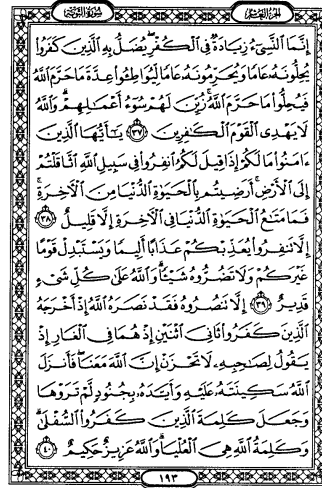 الجزء العاشر
سورة التوبة
إِنَّمَا النَّسِيءُ زِيَادَةٌ فِي الْكُفْرِ يُضَلُّ بِهِ الَّذِينَ كَفَرُوا
يُحِلُّونَهُ عَامًا وَيُحَرِّمُونَهُ عَامًا لِيُوَاطِئُوا عِدَّةَ مَا حَرَّمَ اللَّهُ
فَيُحِلُّوا مَا حَرَّمَ اللَّهُ زُيِّنَ لَهُمْ سُوءُ أَعْمَالِهِمْ وَاللَّهُ
لَا يَهْدِي الْقَوْمَ الْكَافِرِينَ ٣٧ يَا أَيُّهَا الَّذِينَ
ءَامَنُوا مَا لَكُمْ إِذَا قِيلَ لَكُمُ انفِرُوا فِي سَبِيلِ اللَّهِ اثَّاقَلْتُمْ
إِلَى الْأَرْضِ أَرَضِيتُم بِالْحَيَوٰةِ الدُّنْيَا مِنَ الْآخِرَةِ
فَمَا مَتَاعُ الْحَيَوٰةِ الدُّنْيَا فِي الْآخِرَةِ إِلَّا قَلِيلٌ ٣٨
إِلَّا تَنفِرُوا يُعَذِّبْكُمْ عَذَابًا أَلِيمًا وَيَسْتَبْدِلْ قَوْمًا
غَيْرَكُمْ وَلَا تَضُرُّوهُ شَيْئًا وَاللَّهُ عَلَىٰ كُلِّ شَيْءٍ
قَدِيرٌ ٣٩ إِلَّا تَنصُرُوهُ فَقَدْ نَصَرَهُ اللَّهُ إِذْ أَخْرَجَهُ
الَّذِينَ كَفَرُوا ثَانِيَ اثْنَيْنِ إِذْ هُمَا فِي الْغَارِ إِذْ
يَقُولُ لِصَاحِبِهِ لَا تَحْزَنْ إِنَّ اللَّهَ مَعَنَا فَأَنزَلَ
اللَّهُ سَكِينَتَهُ عَلَيْهِ وَأَيَّدَهُ بِجُنُودٍ لَّمْ تَرَوْهَا
وَجَعَلَ كَلِمَةَ الَّذِينَ كَفَرُوا السُّفْلَىٰ
وَكَلِمَةُ اللَّهِ هِيَ الْعُلْيَا وَاللَّهُ عَزِيزٌ حَكِيمٌ ٤٠
١٩٣